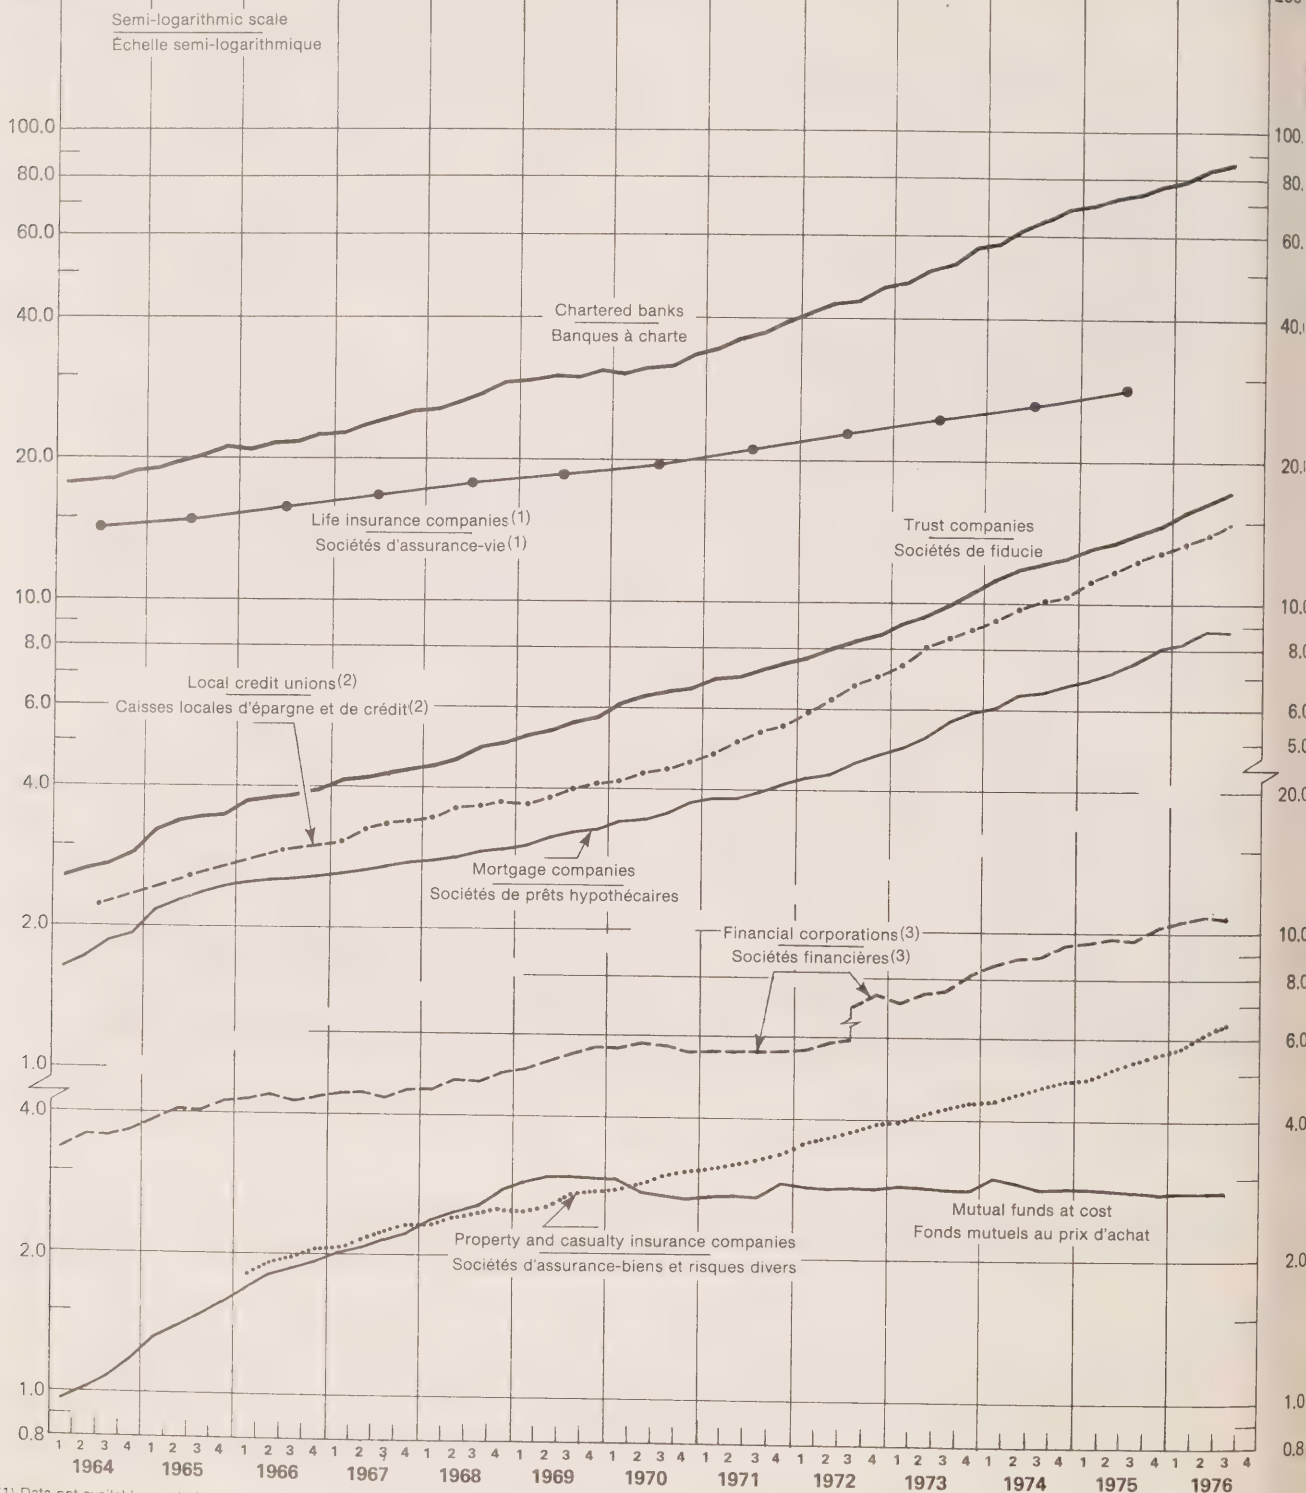 Semi-logarithmic scale
Échelle semi-logarithmique
100.0
80.0
60.0
40.0
20.0
10.0
8.0
6.0
4.0
2.0
1.0
4.0
2.0
1.0
0.8
100.
80.
60.
40.
20.
10.
8.0
6.0
5.0
20.0
10.0
8.0
6.0
4.0
2.0
1.0
0.8
Chartered banks
Banques à charte
Life insurance companies(1)
Sociétés d'assurance-vie(1)
Trust companies
Sociétés de fiducie
Local credit unions(2)
Caisses locales d'épargne et de crédit(2)
Mortgage companies
Sociétés de prêts hypothécaires
Financial corporations(3)
Sociétés financières(3)
Mutual funds at cost
Fonds mutuels au prix d'achat
Property and casualty insurance companies
Sociétés d'assurance-biens et risques divers
1 2 3 4 1 2 3 4 1 2 3 4 1 2 3 4 1 2 3 4 1 2 3 4 1 2 3 4 1 2 3 4 1 2 3 4 1 2 3 4 1 2 3 4 1 2 3 4 1 2 3 4
1964 1965 1966 1967 1968 1969 1970 1971 1972 1973 1974 1975 1976